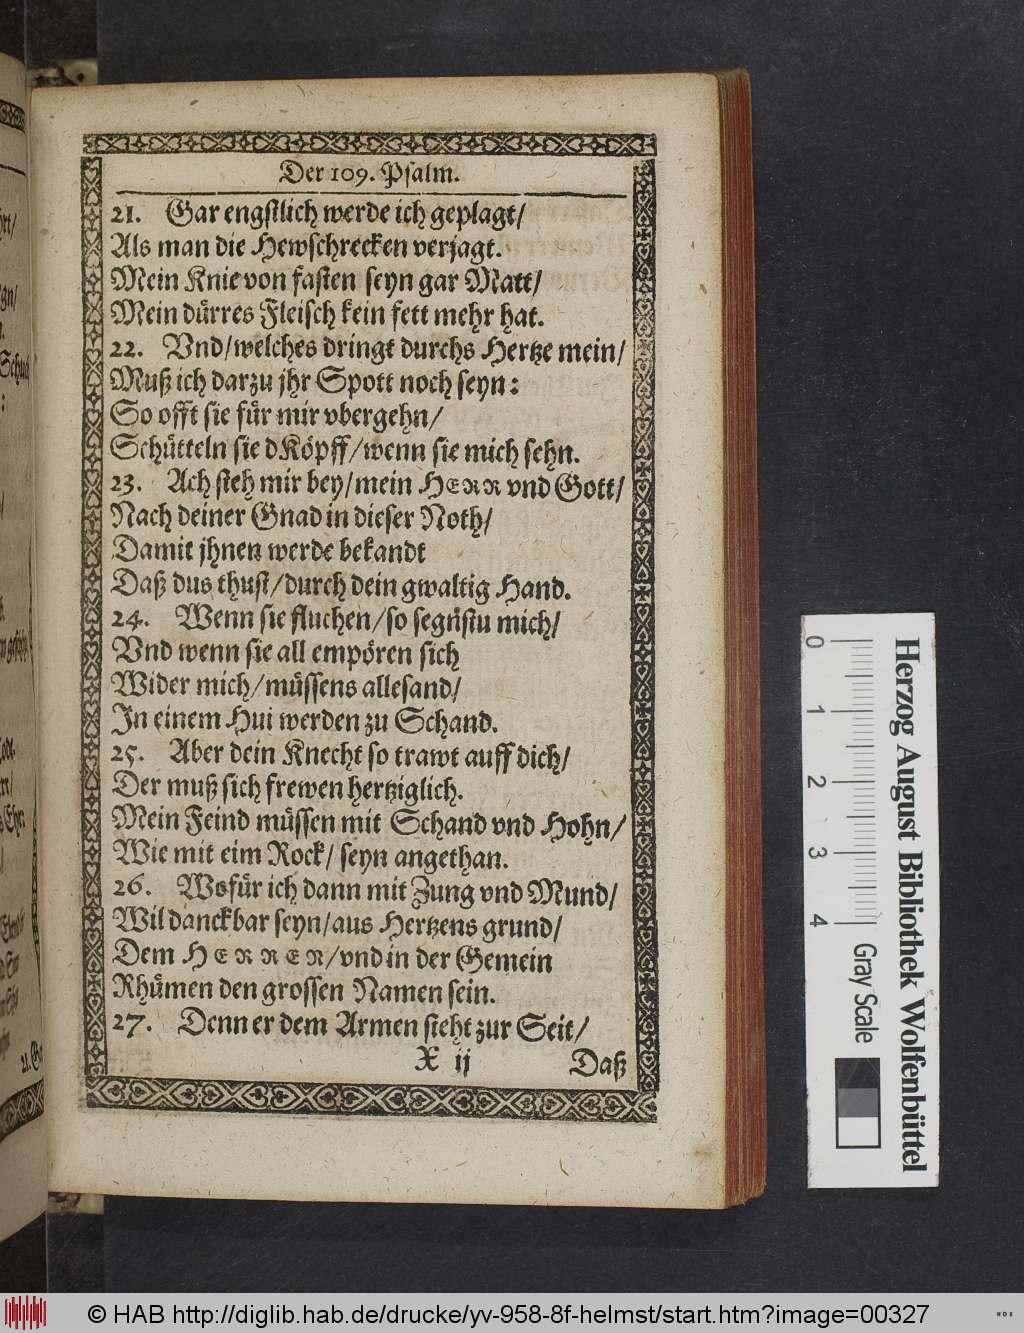 Der 109. Psalm.
21. Gar engstlich werde ich geplagt/
Als man die Hewschrecken verjagt.
Mein Knie von fasten seyn gar Matt/
Mein dürres Fleisch kein fett mehr hat.
22. Vnd/welches dringt durchs Hertze mein/
Muß ich darzu jhr Spott noch seyn:
So offt sie für mir vbergehn/
Schütteln sie dKöpff/wenn sie mich sehn.
23. Ach steh mir bey/mein HERR vnd Gott/
Nach deiner Gnad in dieser Noth/
Damit jhnen werde bekandt
Daß dus thust/durch dein gwaltig Hand.
24. Wenn sie fluchen/so segnstu mich/
Vnd wenn sie all empören sich
Wider mich/müssens allesand/
In einem Hui werden zu Schand.
25. Aber dein Knecht so trawt auff dich/
Der muß sich frewen hertziglich.
Mein Feind müssen mit Schand vnd Hohn/
Wie mit eim Rock/ seyn angethan.
26. Wofür ich dann mit Zung vnd Mund/
Wil danckbar seyn/aus Hertzens grund/
Dem HERREN/vnd in der Gemein
Rhümen den grossen Namen sein.
27. Denn er dem Armen sieht zur Seit/
X ij Daß
21. Ga
0 1 2 3 4
Gray Scale
Herzog August Bibliothek Wolfenbüttel
© HAB http://diglib.hab.de/drucke/yv-958-8f-helmst/start.htm?image=00327